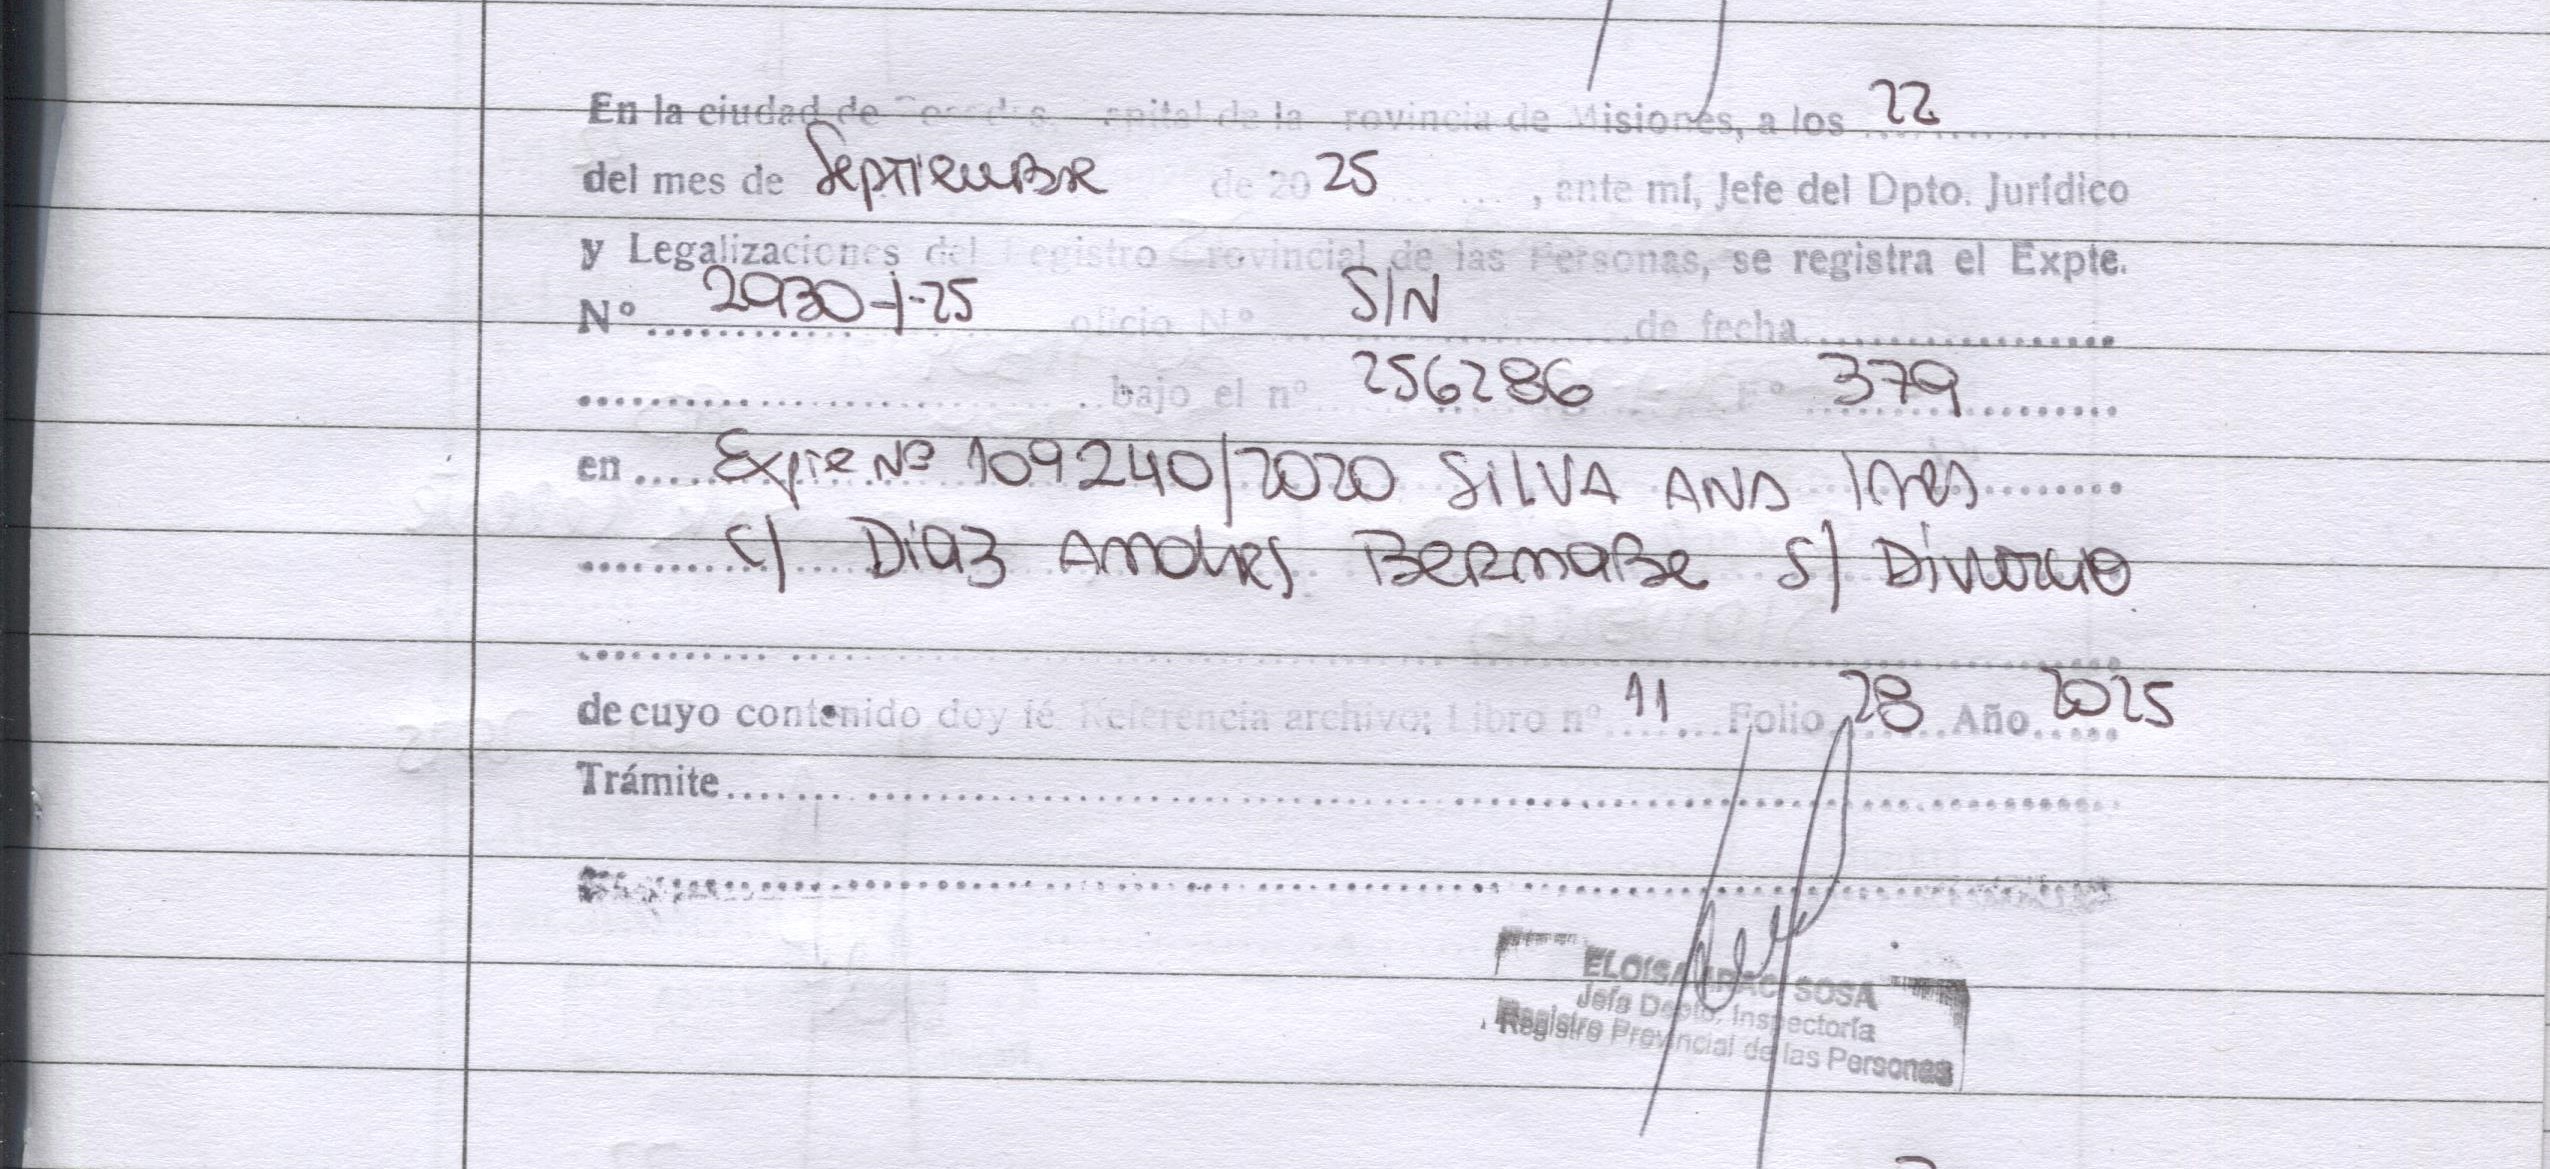 En la ciudad de Posadas, capital de la Provincia de Misiones, a los 22
del mes de Septiembre de 20 25, ante mí, Jefe del Dpto. Jurídico
y Legalizaciones del Registro Provincial de las Personas, se registra el Expte.
Nº 2930-I-25 oficio Nº S/N de fecha
bajo el nº 256286 Fº 379
en Expte Nº 109240/2020 SILVA ANA Ines
c/ Diaz Andres Bernabe s/ Divorcio
de cuyo contenido doy fé. Referencia archivo: Libro nº 11 Folio 28 Año 2025
Trámite
ELOISA ARACI SOSA
Jefa Depto. Inspectoría
Registro Provincial de las Personas